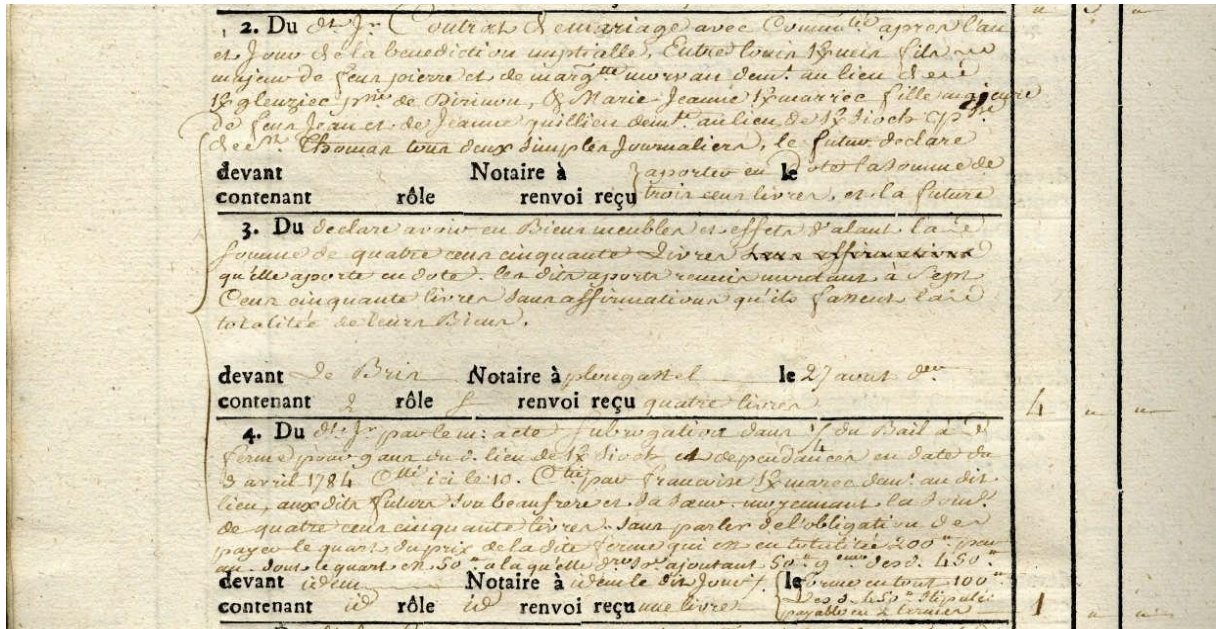 2. Du dt Jr Contrat de mariage avec Commutté apres l'an
et Jour de la benediction nuptialle, Entre louis Kneis fils
majeur de feus pierre et de margtte morvan demt au lieu de
Kgleuziec psse de Dirinon, & Marie-Jeanne Kmarrec fille majeure
de feus Jean et de Jeanne quillien demte au lieu de K Sioch psse
de St Thomas tous deux simples Journaliers, le futur declare
devant Notaire à aporter en le dote la somme de
contenant rôle renvoi reçu trois cens livres, et la future
3. Du declare avoir en Biens meubles et effets valant la
somme de quatre cens cinquante livres sans affirmations
qu'elle aporte en dote. les dits aports reunis montans à Sept
Cens cinquante livres sans affirmations qu'ils fassent la
totalitée de leurs Biens.
devant Le Bris Notaire à plougastel le 27 aout der
contenant 2 rôle renvoi reçu quatre livres 4 " "
4. Du dt Jr par le m: acte Subrogation dans 1/4 du Bail à
ferme pour 9 ans du d. lieu de K Sioch et dependances en date du
3 avril 1784 Ctlé ici le 10. par francoise Kmarec demt au dit
lieu, aux dits futurs son beaufrere et sa sœur moyennant la somme
de quatre cens cinquante livres. Sans parler de l'obligation de
payer le quart du prix de la dite ferme qui est en totalitée 200" par
an dont le quart est 50" a la quelle ajoutant 50" des d. 450"
devant idem Notaire à idem le dit Jour le forme en tout 100"
contenant id rôle id renvoi reçu une livre Les d. 450" Stipulé 1 " "
payable en 2 termes